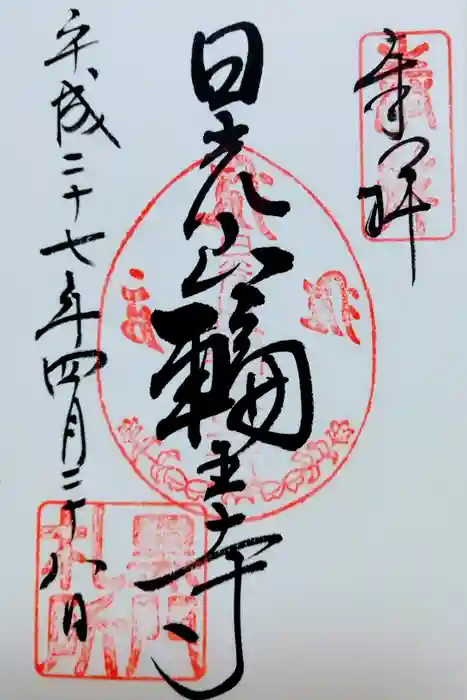 奉拝
日光山輪王寺
平成二十七年四月二十八日
黒門
札所